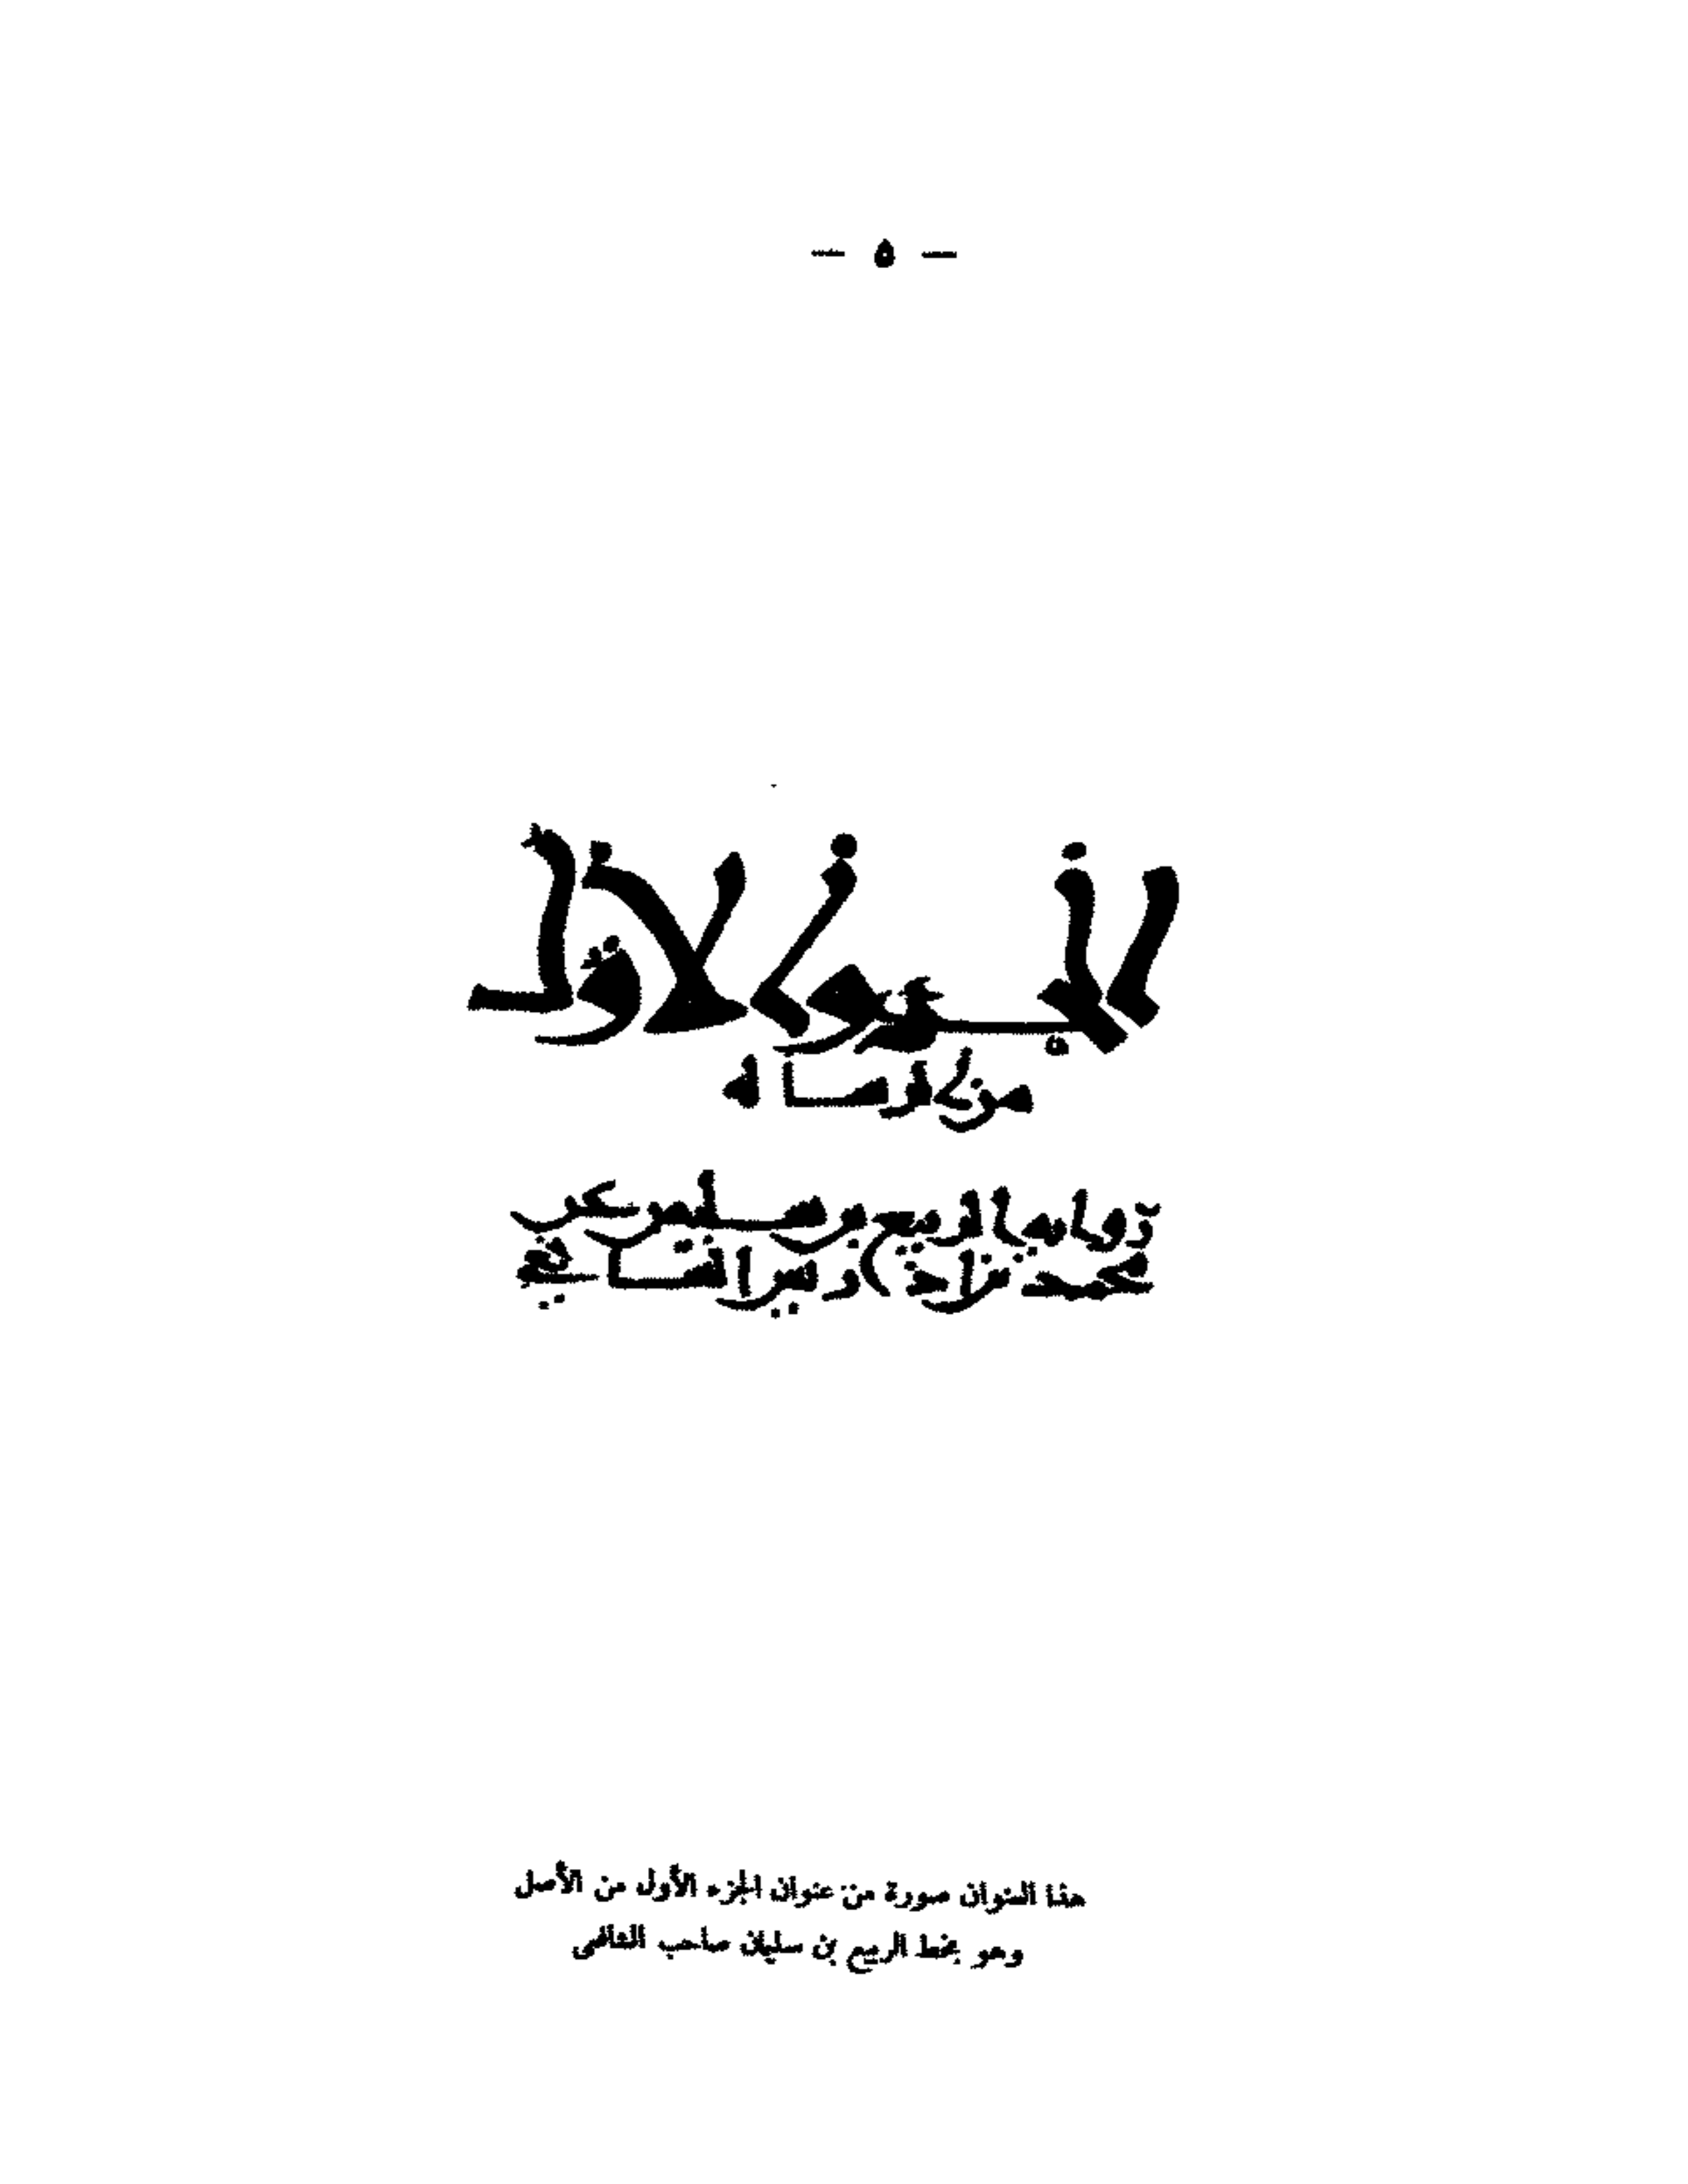 — ٥ —
الجزو الاول
من كتاب الرسالة
رواية الربيع بن سليمن عن
محمد بن ادريس الشافعي
هذا العنوان صورة من عنوان الجزء الأول من الأصل
وهو بخط الربيع بن سليمان صاحب الشافعى